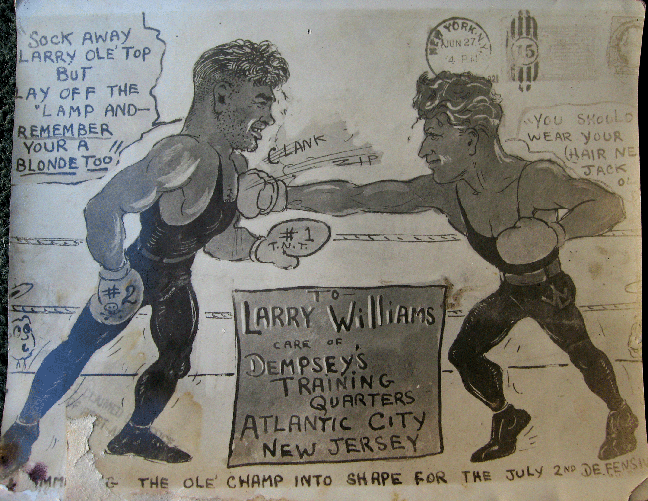 "SOCK AWAY
LARRY OLE' TOP
BUT
LAY OFF THE
"LAMP AND—
REMEMBER
YOUR A
BLONDE TOO"!!
NEW YORK, N.Y.
JUN 27
4 PM
15
CLANK
ZIP
"YOU SHOULD
WEAR YOUR
(HAIR NE
JACK
#1
T.N.T.
#2
TO
LARRY WILLIAMS
CARE OF
DEMPSEY'S
TRAINING
QUARTERS
ATLANTIC CITY
NEW JERSEY
THE OLE' CHAMP INTO SHAPE FOR THE JULY 2ND DEFENSI